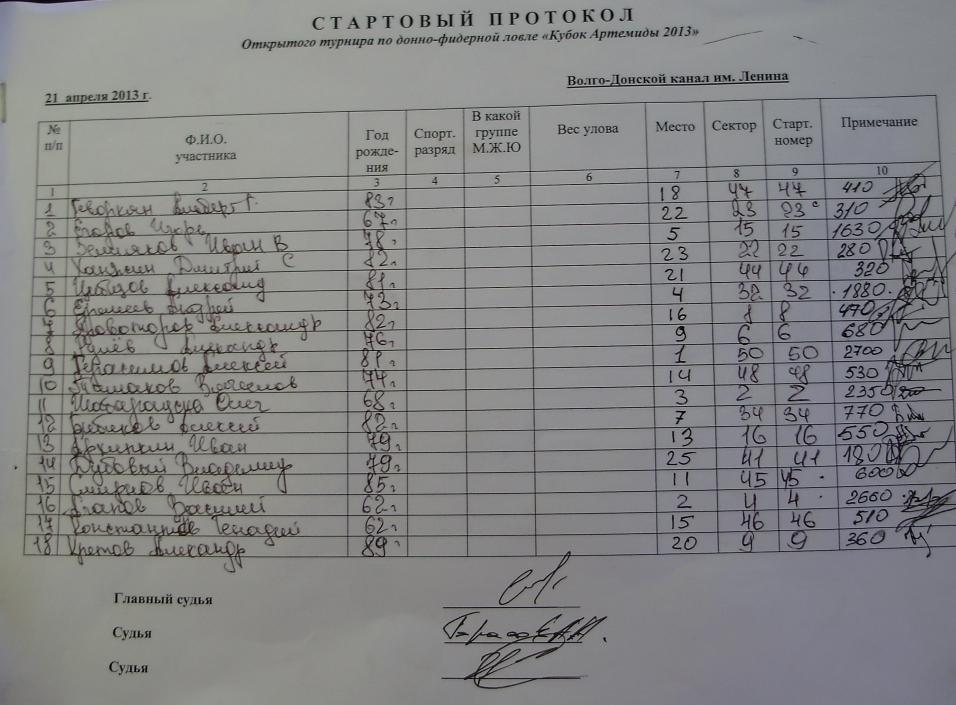 СТАРТОВЫЙ ПРОТОКОЛ
Открытого турнира по донно-фидерной ловле «Кубок Артемиды 2013»
21 апреля 2013 г.
Волго-Донской канал им. Ленина
№ п/п Ф.И.О. участника Год рожде-ния Спорт. разряд В какой группе М.Ж.Ю Вес улова Место Сектор Старт. номер Примечание
1 2 3 4 5 6 7 8 9 10
1 Геворкян Альберт Г. 83г 18 47 47 410
2 Егоров Игорь 67г 22 23 23 310
3 Земляков Иван В 78г 5 15 15 1630
4 Ханжин Дмитрий С 82г 23 22 22 280
5 Александр 81г 21 44 44 320
6 Еремеев Андрей 73г 4 32 32 1880
7 Александр 82г 16 8 8 470
8 Александр 76г 9 6 6 680
9 Герасимов Алексей 81г 1 50 50 2700
10 Вячеслав 74г 14 48 48 530
11 Олег 68г 3 2 2 2350
12 Алексей 82г 7 34 34 770
13 Архипкин Иван 79г 13 16 16 550
14 Дубовый Владимир 79г 25 41 41 180
15 Смирнов Иван 85г 11 45 45 600
16 Агапов Василий 62г 2 4 4 2660
17 Константинов Генадий 62г 15 46 46 510
18 Кретов Александр 89г 20 9 9 360
Главный судья
Судья
Судья